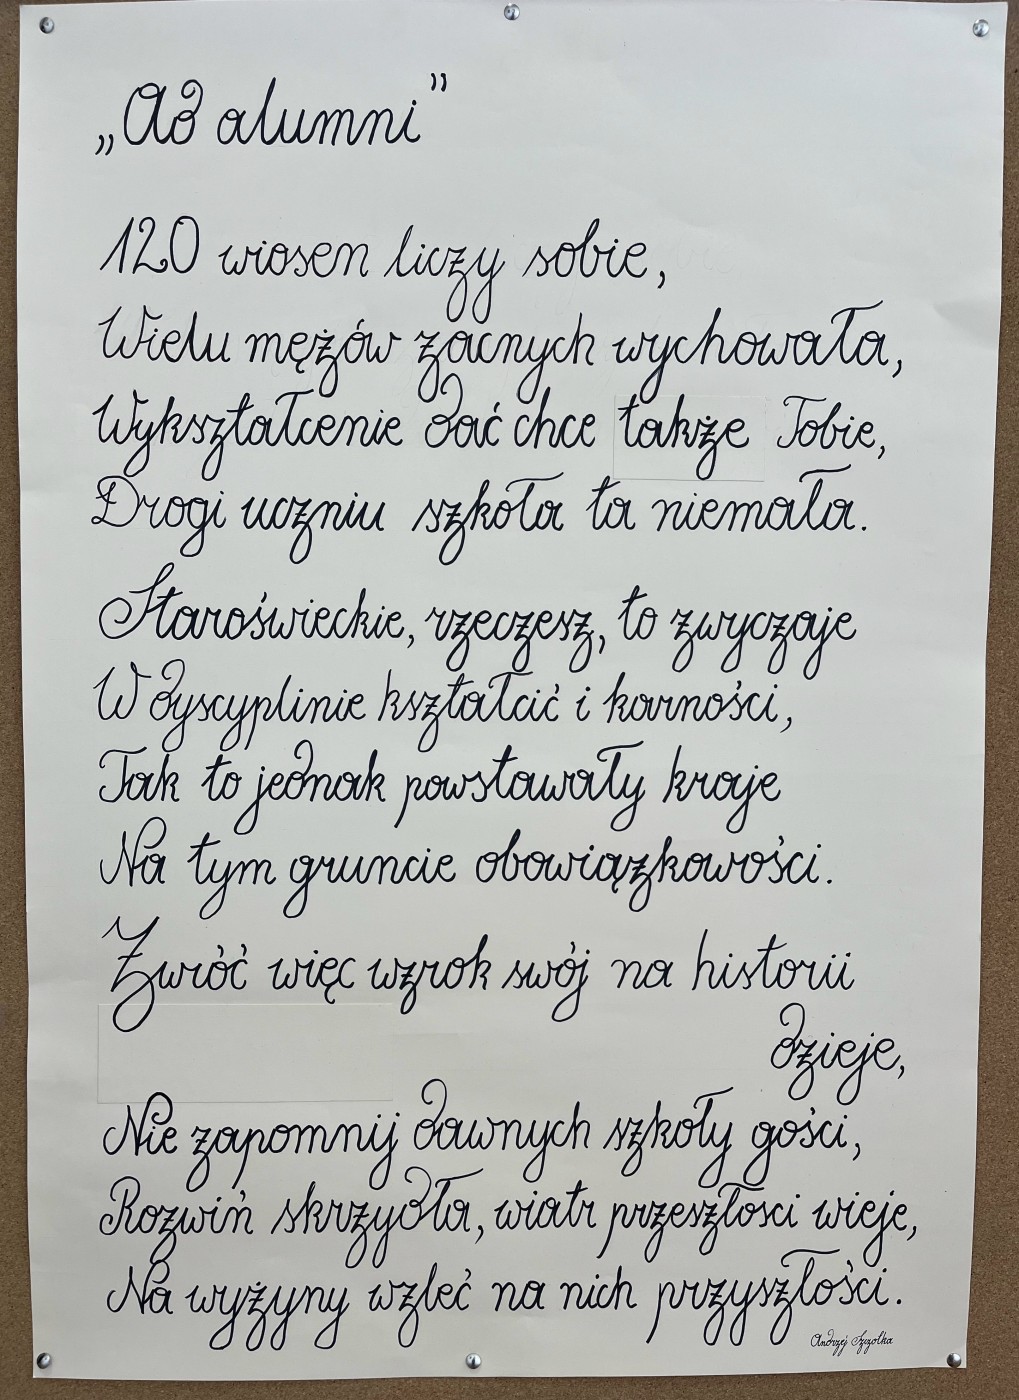 „Ad alumni”
120 wiosen liczy sobie,
Wielu mężów zacnych wychowała,
Wykształcenie dać chce także Tobie,
Drogi uczniu szkoła ta niemała.
Staroświeckie, rzeczesz, to zwyczaje
W dyscyplinie kształcić i karności,
Tak to jednak powstawały kraje
Na tym gruncie obowiązkowości.
Zwróć więc wzrok swój na historii
dzieje,
Nie zapomnij dawnych szkoły gości,
Rozwiń skrzydła, wiatr przeszłosci wieje,
Na wyżyny wzleć na nich przyszłości.
Andrzej